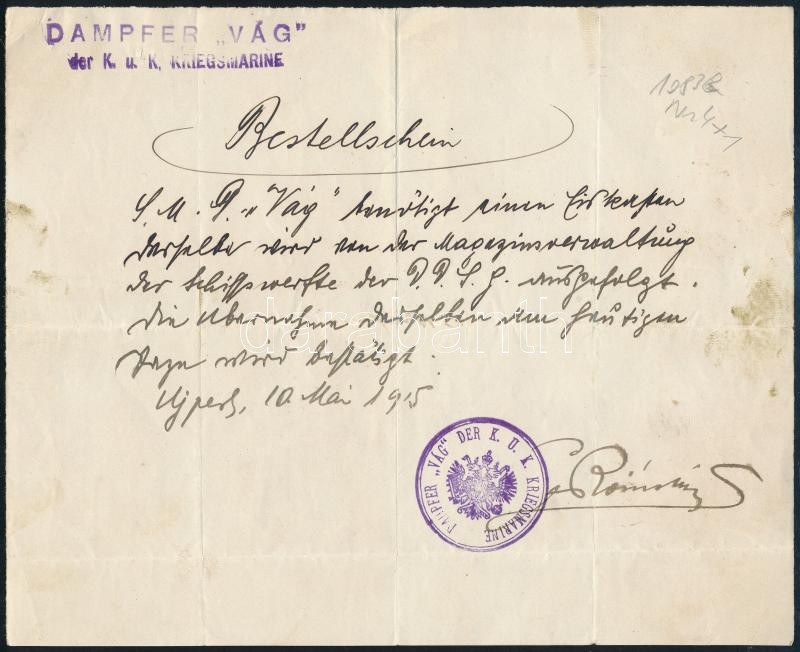 DAMPFER „VÁG”
der K. u. K. KRIEGSMARINE
Bestellschein
S. M. D. „Vág” benötigt einen Eiskasten
derselbe wird von der Magazinsverwaltung
der Schiffswerfte der D. D. S. G. ausgefolgt.
Die Übernahme desselben am heutigen
Tage wird bestätigt.
Ujpest, 10 Mai 1915
DAMPFER „VÁG” DER K. U. K. KRIEGSMARINE
darabanth